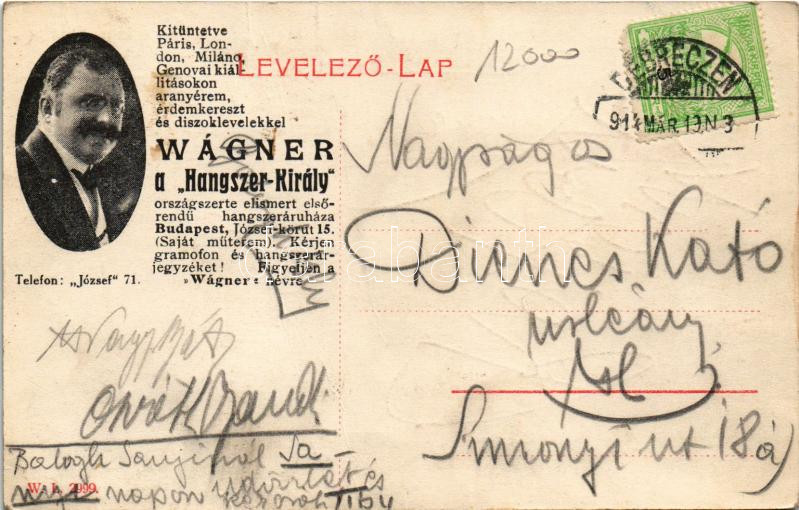 Kitüntetve
Páris, Lon-
don, Miláno,
Genovai kiál-
litásokon
aranyérem,
érdemkereszt
és diszoklevelekkel
WÁGNER
a „Hangszer-Király"
országszerte elismert első-
rendű hangszeráruháza
Budapest, József-körut 15.
(Saját műterem). Kérjen
gramofon és hangszerár-
jegyzéket! Figyeljen a
»Wágner« névre
Telefon: „József" 71.
LEVELEZŐ-LAP
12000
DEBRECZEN
914 MÁR. 19. N 3
Nagyságos
Dienes Kató
Simonyi út 18 a)
Balogh
napon üdvözlet és
Tiby
W. L. 2999.